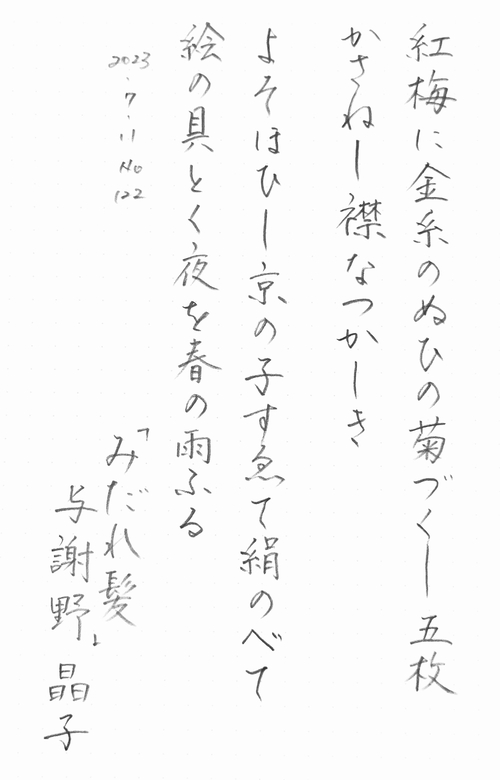 紅梅に金糸のぬひの菊づくし五枚
かさねし襟なつかしき
よそほひし京の子すゑて絹のべて
絵の具とく夜を春の雨ふる
2023.7.11 No 122
「みだれ髪」
与謝野 晶子